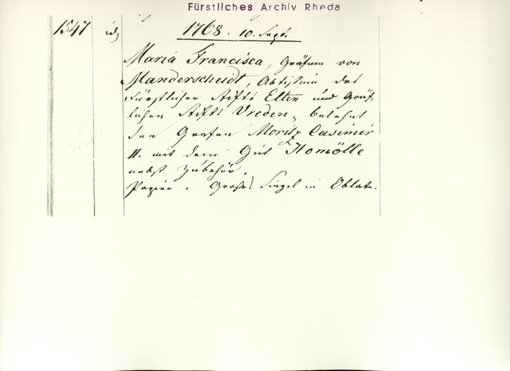 Fürstliches Archiv Rheda
1547
1768. 10. Sept.
Maria Francisca, Gräfinn von
Manderscheidt, Abtissinn des
Fürstlichen Stifts Elten und Gräf-
lichen Stifts Vreden, belehnt
den Grafen Moritz Casimir
II. mit dem Gut Homölle
nebst Zubehör.
Papier. Großes Siegel in Oblate.